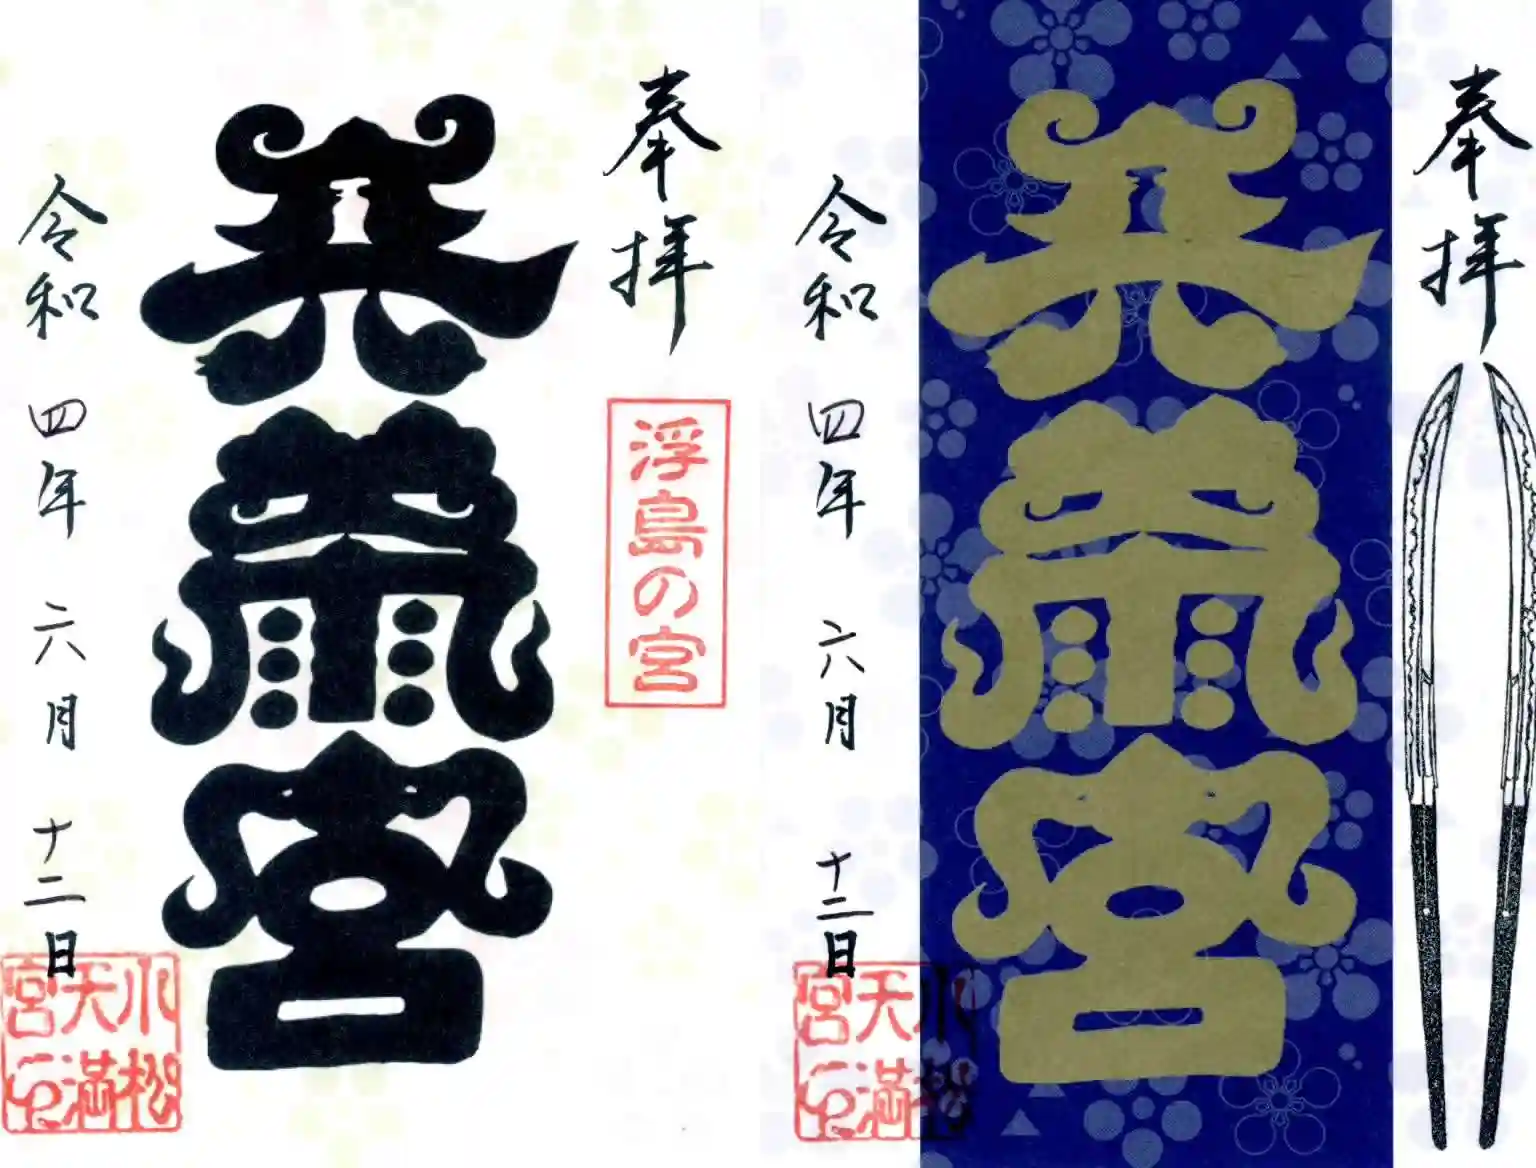 奉拝
浮島の宮
天満宮
令和四年六月十二日
小松
天満
宮印
奉拝
天満宮
令和四年六月十二日
小松
天満
宮印